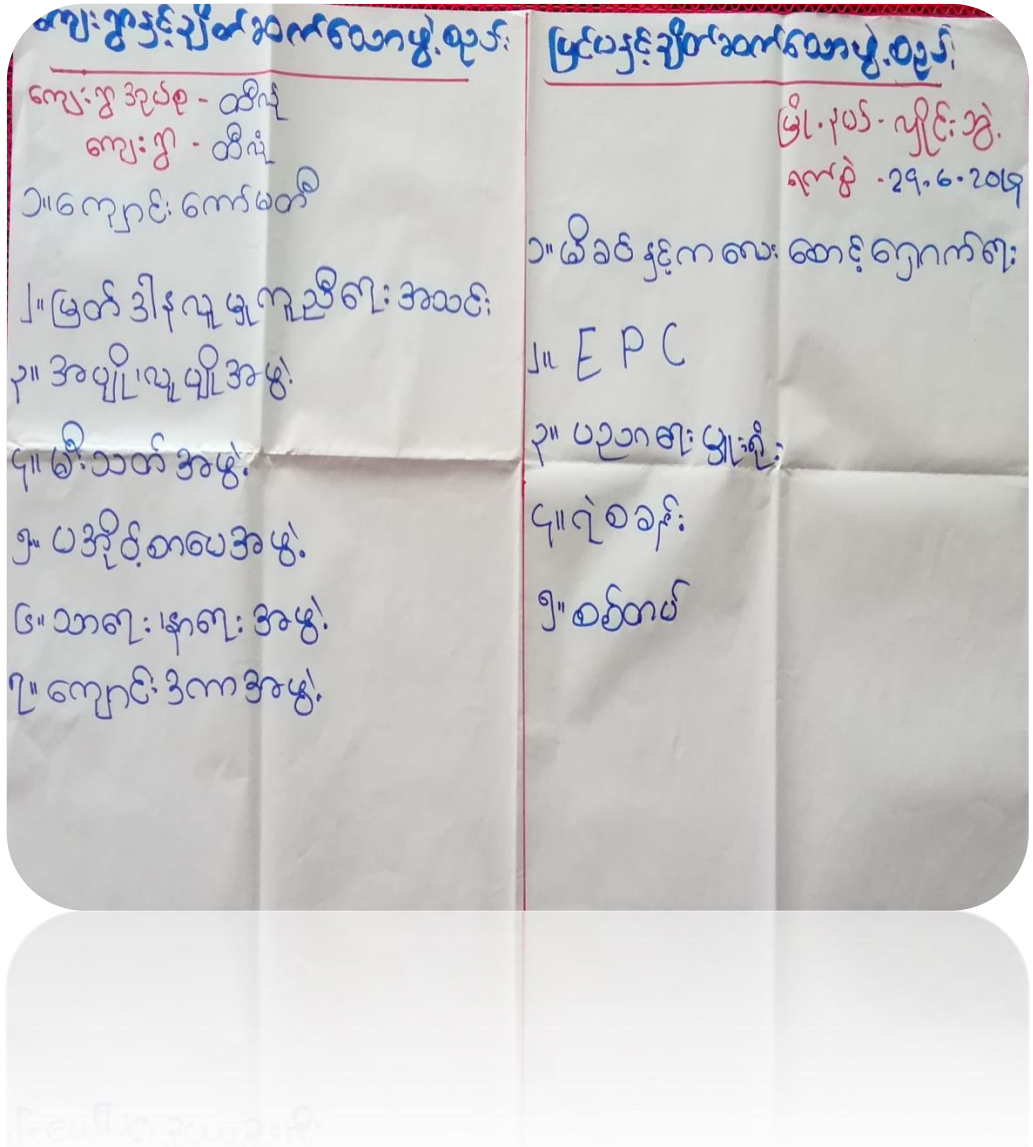 ကျေးရွာနှင့်ချိတ်ဆက်သောဖွဲ့စည်း
ကျေးရွာအုပ်စု - ထီလုံ
ကျေးရွာ - ထီလုံ
၁။ကျောင်းကော်မတီ
၂။မြတ်ဒါနလူမှုကူညီရေးအသင်း
၃။အပျို၊လူပျိုအဖွဲ့
၄။မီးသတ်အဖွဲ့
၅။ပအိုဝ့်စာပေအဖွဲ့
၆။သာရေး၊နာရေးအဖွဲ့
၇။ကျောင်းဒကာအဖွဲ့
ပြင်ပနှင့်ချိတ်ဆက်သောဖွဲ့စည်း
မြို့နယ် - လှိုင်းဘွဲ့
ရက်စွဲ - 29.6.2019
၁။မိခင်နှင့်ကလေးစောင့်ရှောက်ရေး
၂။ E P C
၃။ပညာရေးမှူးရုံး
၄။ရဲစခန်း
၅။စစ်တပ်